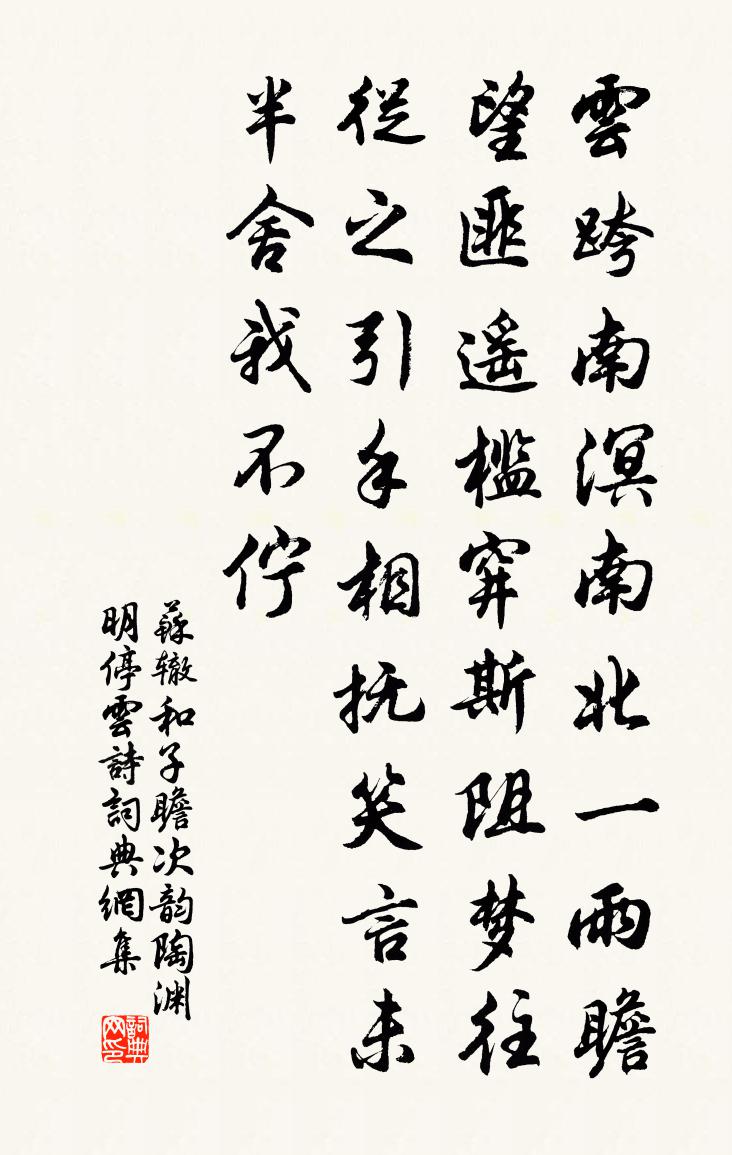 雲跨南溟南北一雨瞻
望匪遥槛穽斯阻梦往
從之引手相抚笑言未
半舍我不佇
蘇辙和子瞻次韵陶渊
明停雲詩詞典網集
詞典網印